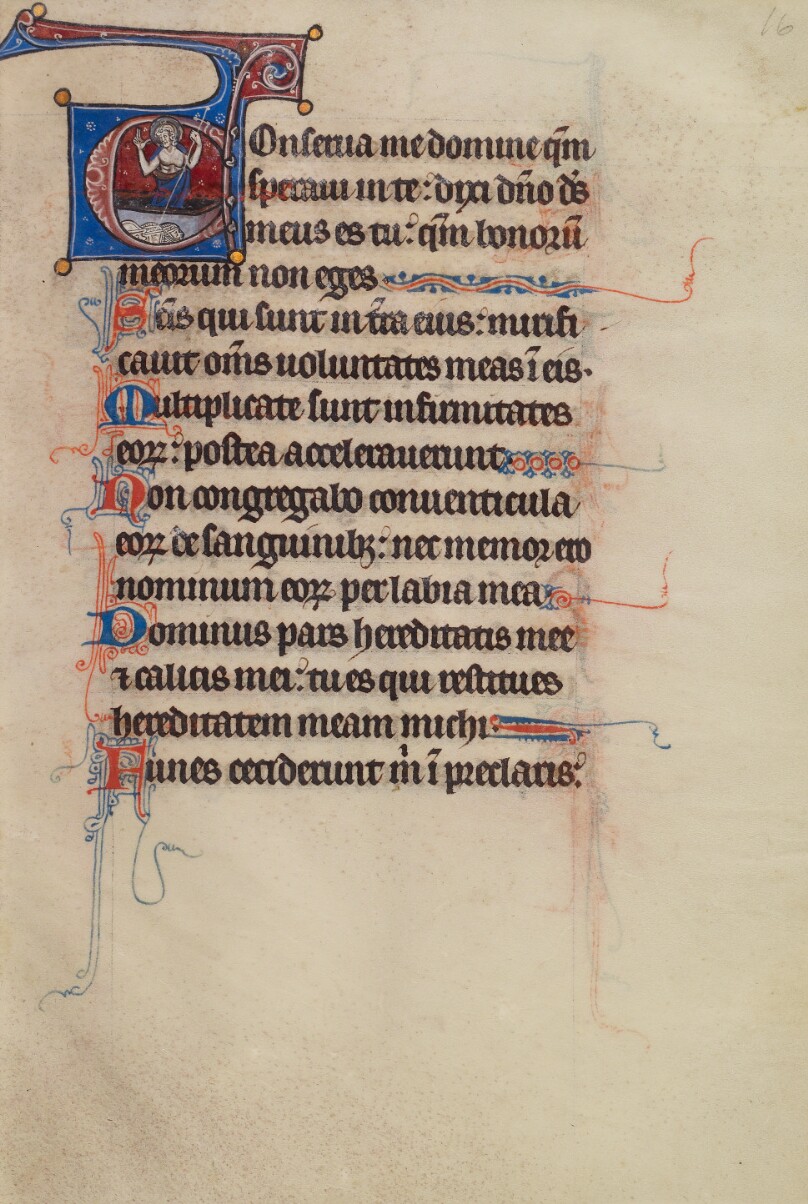 16
Conserua me domine qm̄
speraui in te: dixi dn̄o ds̄
meus es tu: qm̄ bonorū
meorum non eges
Scīs qui sunt in tr̄a eius: mirifi
cauit om̄s uoluntates meas ī eis.
Multiplicate sunt infirmitates
eoꝝ: postea accelerauerunt
Non congregabo conuenticula
eoꝝ de sanguinibꝫ: nec memor ero
nominum eoꝝ per labia mea
Dominus pars hereditatis mee
⁊ calicis mei: tu es qui restitues
hereditatem meam michi.
Funes ceciderunt m̄ ī preclaris: